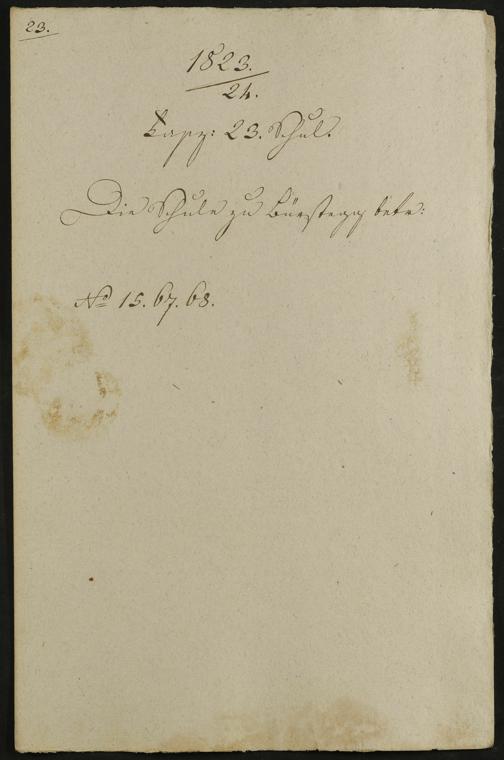 23.
1823.
24.
Fasz: 23. Schul.
Die Schule zu Bürstegg betr:
No 15. 67. 68.